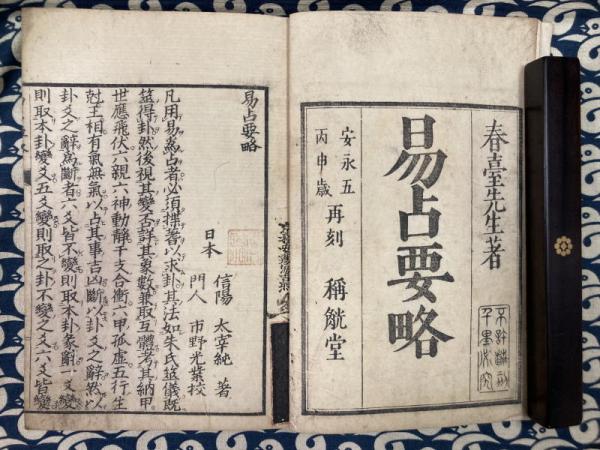 春臺先生著
易占要略
安永五
丙申歳
再刻　稱觥堂
不許翻刻
千里必究
易占要略
日本　信陽　太宰純　著
門人　市野光業　校
凡用易爲占者必須揲蓍以求卦其法如朱氏筮儀既
筮得卦然後視其變否詳其象數兼取互體考其納甲
世應飛伏六親六神動靜干支合衝六甲孤虛五行生
尅王相有氣無氣以占其事吉凶斷以卦爻之辭然以
卦爻之辭爲斷者六爻皆不變則取本卦彖辭一爻變
則取本卦變爻五爻變則取之卦不變之爻六爻皆變